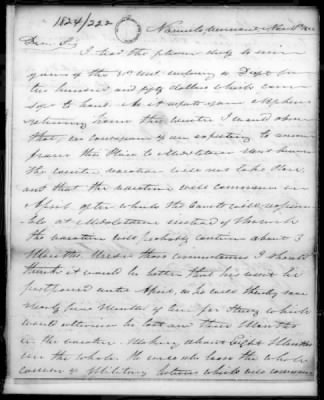 1824/222
Dear Sir
I had the pleasure duly to receive
yours of the
two hundred and fifty dollars which came
safe to hand. As it respects your Nephew
returning home this winter I would observe
that, in consequence of our expecting to remove
from this place to Middletown
the winter vacation will not take place,
and that the vacation will commence in
April after which the Cadets will
ble at Middletown instead of Norwich
the vacation will probably continue about 3
Months. Under these circumstances I should
think it would be better that his visit be
postponed until April, as he will thereby save
nearly five months of time for study which
would otherwise be lost and three Months
in the vacation. Making about Eight Months
in the whole. He would also lose the whole
course of Military lectures which will commence